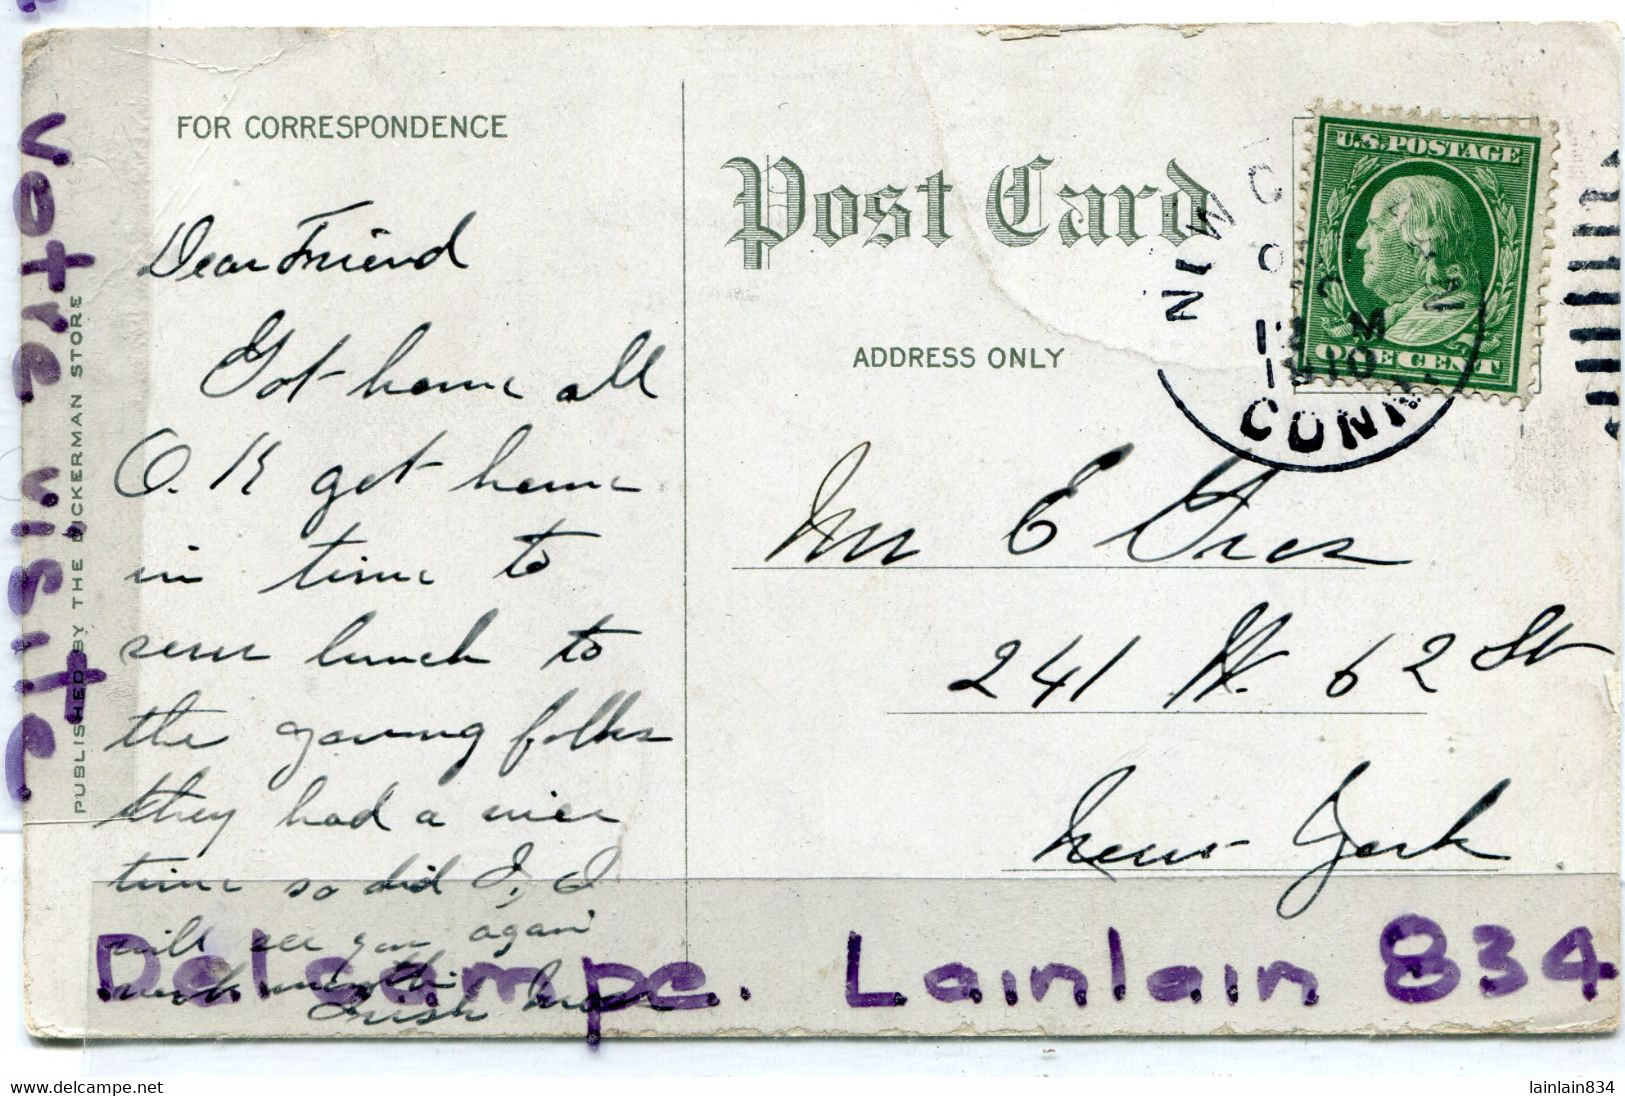 FOR CORRESPONDENCE
Dear Friend
Got home all
O. K got home
in time to
serve lunch to
the young folks
they had a nice
time so did I, I
will see you again
next month
Irish
PUBLISHED BY THE DICKERMAN STORE
Post Card
ADDRESS ONLY
U.S. POSTAGE
ONE CENT
CONN.
Mr E
241 W. 62 St
New York
votre visite
Delcampe. Lainlain 834
delcampe.net
lainlain834